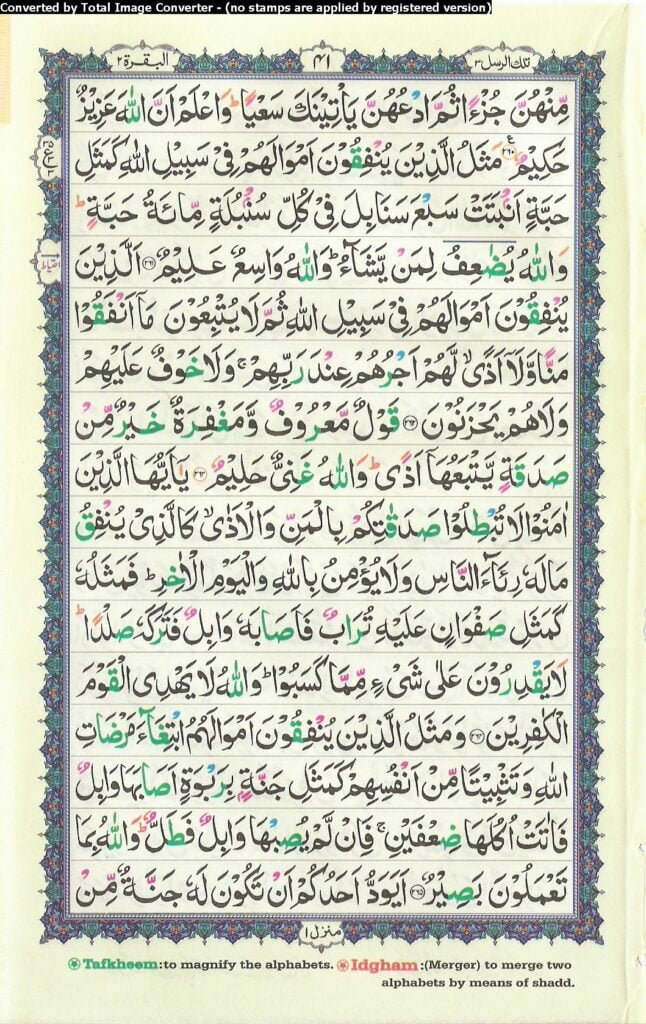 Converted by Total Image Converter - (no stamps are applied by registered version)
تلك الرسل ٣
٤١
البقرة ٢
مِّنْهُنَّ جُزْءًا ثُمَّ ادْعُهُنَّ يَاْتِيْنَكَ سَعْيًا ؕ وَاعْلَمْ اَنَّ اللّٰهَ عَزِيْزٌ
حَكِيْمٌ ﴿۲۶۰﴾ مَثَلُ الَّذِيْنَ يُنْفِقُوْنَ اَمْوَالَهُمْ فِيْ سَبِيْلِ اللّٰهِ كَمَثَلِ
حَبَّةٍ اَنْۢبَتَتْ سَبْعَ سَنَابِلَ فِيْ كُلِّ سُنْۢبُلَةٍ مِّائَةُ حَبَّةٍ ؕ
وَاللّٰهُ يُضٰعِفُ لِمَنْ يَّشَآءُ ؕ وَاللّٰهُ وَاسِعٌ عَلِيْمٌ ﴿۲۶۱﴾ اَلَّذِيْنَ
يُنْفِقُوْنَ اَمْوَالَهُمْ فِيْ سَبِيْلِ اللّٰهِ ثُمَّ لَا يُتْبِعُوْنَ مَاۤ اَنْفَقُوْا
مَنًّا وَّلَاۤ اَذًى ۙ لَّهُمْ اَجْرُهُمْ عِنْدَ رَبِّهِمْ ۚ وَلَا خَوْفٌ عَلَيْهِمْ
وَلَا هُمْ يَحْزَنُوْنَ ﴿۲۶۲﴾ قَوْلٌ مَّعْرُوْفٌ وَّمَغْفِرَةٌ خَيْرٌ مِّنْ
صَدَقَةٍ يَّتْبَعُهَاۤ اَذًى ؕ وَاللّٰهُ غَنِيٌّ حَلِيْمٌ ﴿۲۶۳﴾ يٰۤاَيُّهَا الَّذِيْنَ
اٰمَنُوْا لَا تُبْطِلُوْا صَدَقٰتِكُمْ بِالْمَنِّ وَالْاَذٰى ۙ كَالَّذِيْ يُنْفِقُ
مَالَهٗ رِئَآءَ النَّاسِ وَلَا يُؤْمِنُ بِاللّٰهِ وَالْيَوْمِ الْاٰخِرِ ؕ فَمَثَلُهٗ
كَمَثَلِ صَفْوَانٍ عَلَيْهِ تُرَابٌ فَاَصَابَهٗ وَابِلٌ فَتَرَكَهٗ صَلْدًا ؕ
لَا يَقْدِرُوْنَ عَلٰى شَيْءٍ مِّمَّا كَسَبُوْا ؕ وَاللّٰهُ لَا يَهْدِي الْقَوْمَ
الْكٰفِرِيْنَ ﴿۲۶۴﴾ وَمَثَلُ الَّذِيْنَ يُنْفِقُوْنَ اَمْوَالَهُمُ ابْتِغَآءَ مَرْضَاتِ
اللّٰهِ وَتَثْبِيْتًا مِّنْ اَنْفُسِهِمْ كَمَثَلِ جَنَّةٍۭ بِرَبْوَةٍ اَصَابَهَا وَابِلٌ
فَاٰتَتْ اُكُلَهَا ضِعْفَيْنِ ۚ فَاِنْ لَّمْ يُصِبْهَا وَابِلٌ فَطَلٌّ ؕ وَاللّٰهُ بِمَا
تَعْمَلُوْنَ بَصِيْرٌ ﴿۲۶۵﴾ اَيَوَدُّ اَحَدُكُمْ اَنْ تَكُوْنَ لَهٗ جَنَّةٌ مِّنْ
منزل ١
Tafkheem:to magnify the alphabets. Idgham:(Merger) to merge two
alphabets by means of shadd.